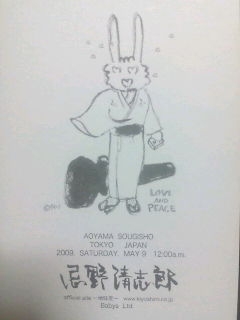 LOVE
AND
PEACE
AOYAMA SOUGISHO
TOKYO JAPAN
2009. SATURDAY. MAY 9 12:00a.m.
忌野清志郎
official site ～地味変～ www.kiyoshiro.co.jp
Babys Ltd.